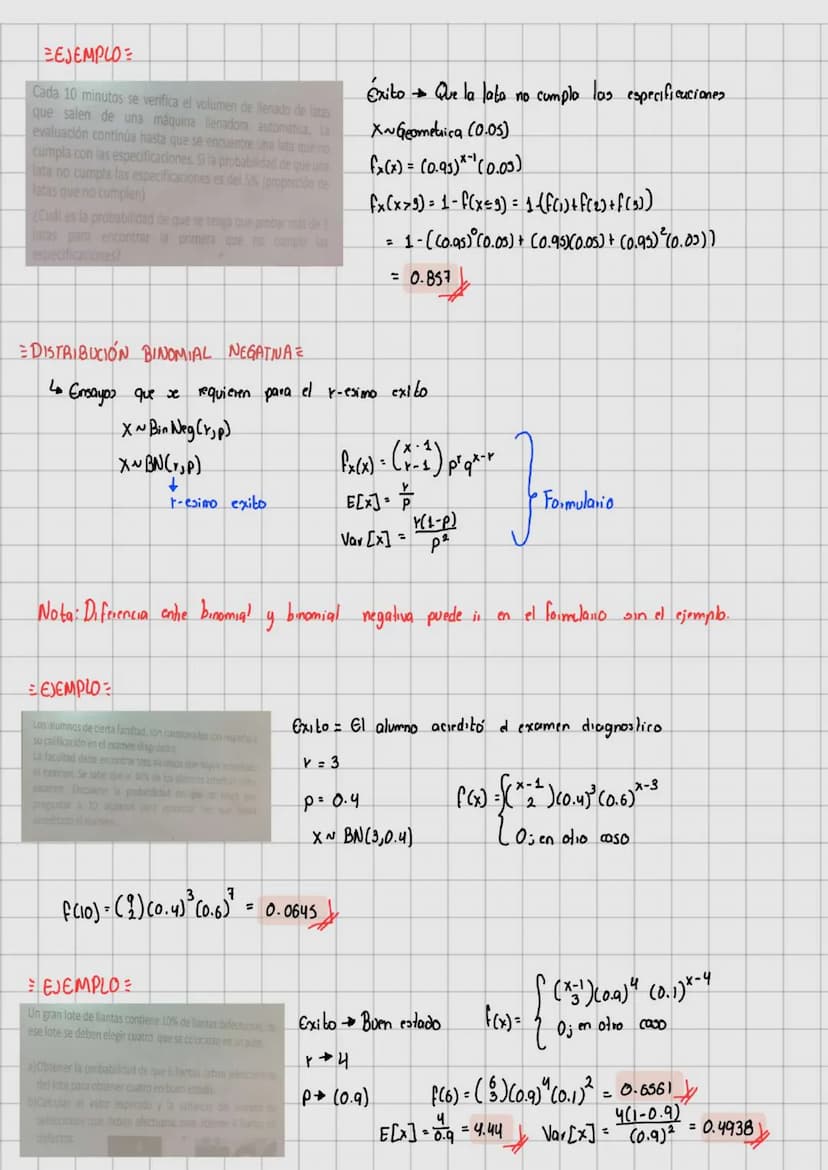 =EJEMPLO=
Cada 10 minutos se verifica el volumen de llenado de latas
que salen de una máquina llenadora automática. La
evaluación continúa hasta que se encuentre una lata que no
cumpla con las especificaciones. Si la probabilidad de que una
lata no cumpla las especificaciones es del 5% (proporción de
latas que no cumplen)
¿Cuál es la probabilidad de que se tenga que probar más de 3
latas para encontrar la primera que no cumple las
especificaciones?
Éxito → Que la lata no cumplo las especificaciones
X~Geométrica (0.05)
fx(x) = (0.95)^x-1 (0.05)
fx(x>3) = 1 - f(x≤3) = 1-(f(1)+f(2)+f(3))
= 1-((0.95)^0(0.05) + (0.95)(0.05) + (0.95)^2(0.05))
= 0.857
=DISTRIBUCIÓN BINOMIAL NEGATIVA=
↳ Ensayos que se requieren para el r-esimo exito
X~BinNeg(r,p)
X~BN(r,p)
↓
r-esimo exito
fx(x) = (x-1 r-1) p^r q^x-r
E[x] = r/p
Var[x] = r(1-p)/p^2
Formulario
Nota: Diferencia entre binomial y binomial negativa puede ir en el formulario sin el ejemplo.
=EJEMPLO=
Los alumnos de cierta facultad, son
su calificación en el examen diagnóstico
La facultad
el examen. Se sabe que el 40% de los alumnos
examen. la probabilidad de que se tenga que
preguntar a 10 alumnos para
Exito = El alumno acreditó el examen diagnostico
r = 3
p = 0.4
X ~ BN(3,0.4)
f(x) = { (x-1 2)(0.4)^3(0.6)^x-3
0; en otro caso
f(10) = (9 2)(0.4)^3(0.6)^7 = 0.0645
=EJEMPLO=
Un gran lote de llantas contiene 10% de llantas defectuosas, de
ese lote se deben elegir cuatro, que se colocarán en un auto.
a)Obtener la probabilidad de que 6 llantas
del lote para obtener cuatro en buen estado.
b)Calcular el valor esperado y la varianza
Exito → Buen estado
r → 4
p → (0.9)
f(x) = { (x-1 3)(0.9)^4 (0.1)^x-4
0; en otro caso
f(6) = (6 3)(0.9)^4(0.1)^2 = 0.6561
E[x] = 4/0.9 = 4.44 Var[x] = 4(1-0.9)/(0.9)^2 = 0.4938